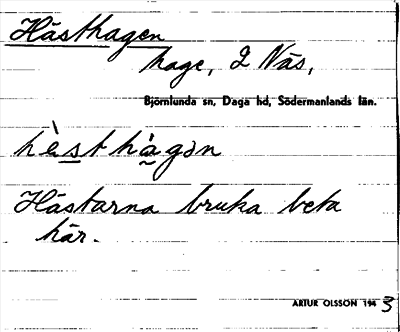 Hästhagen
hage, L Näs,
Björnlunda sn, Daga hd, Södermanlands län.
hɛ̀sthàgən
Hästarna bruka beta
här.
ARTUR OLSSON 1943